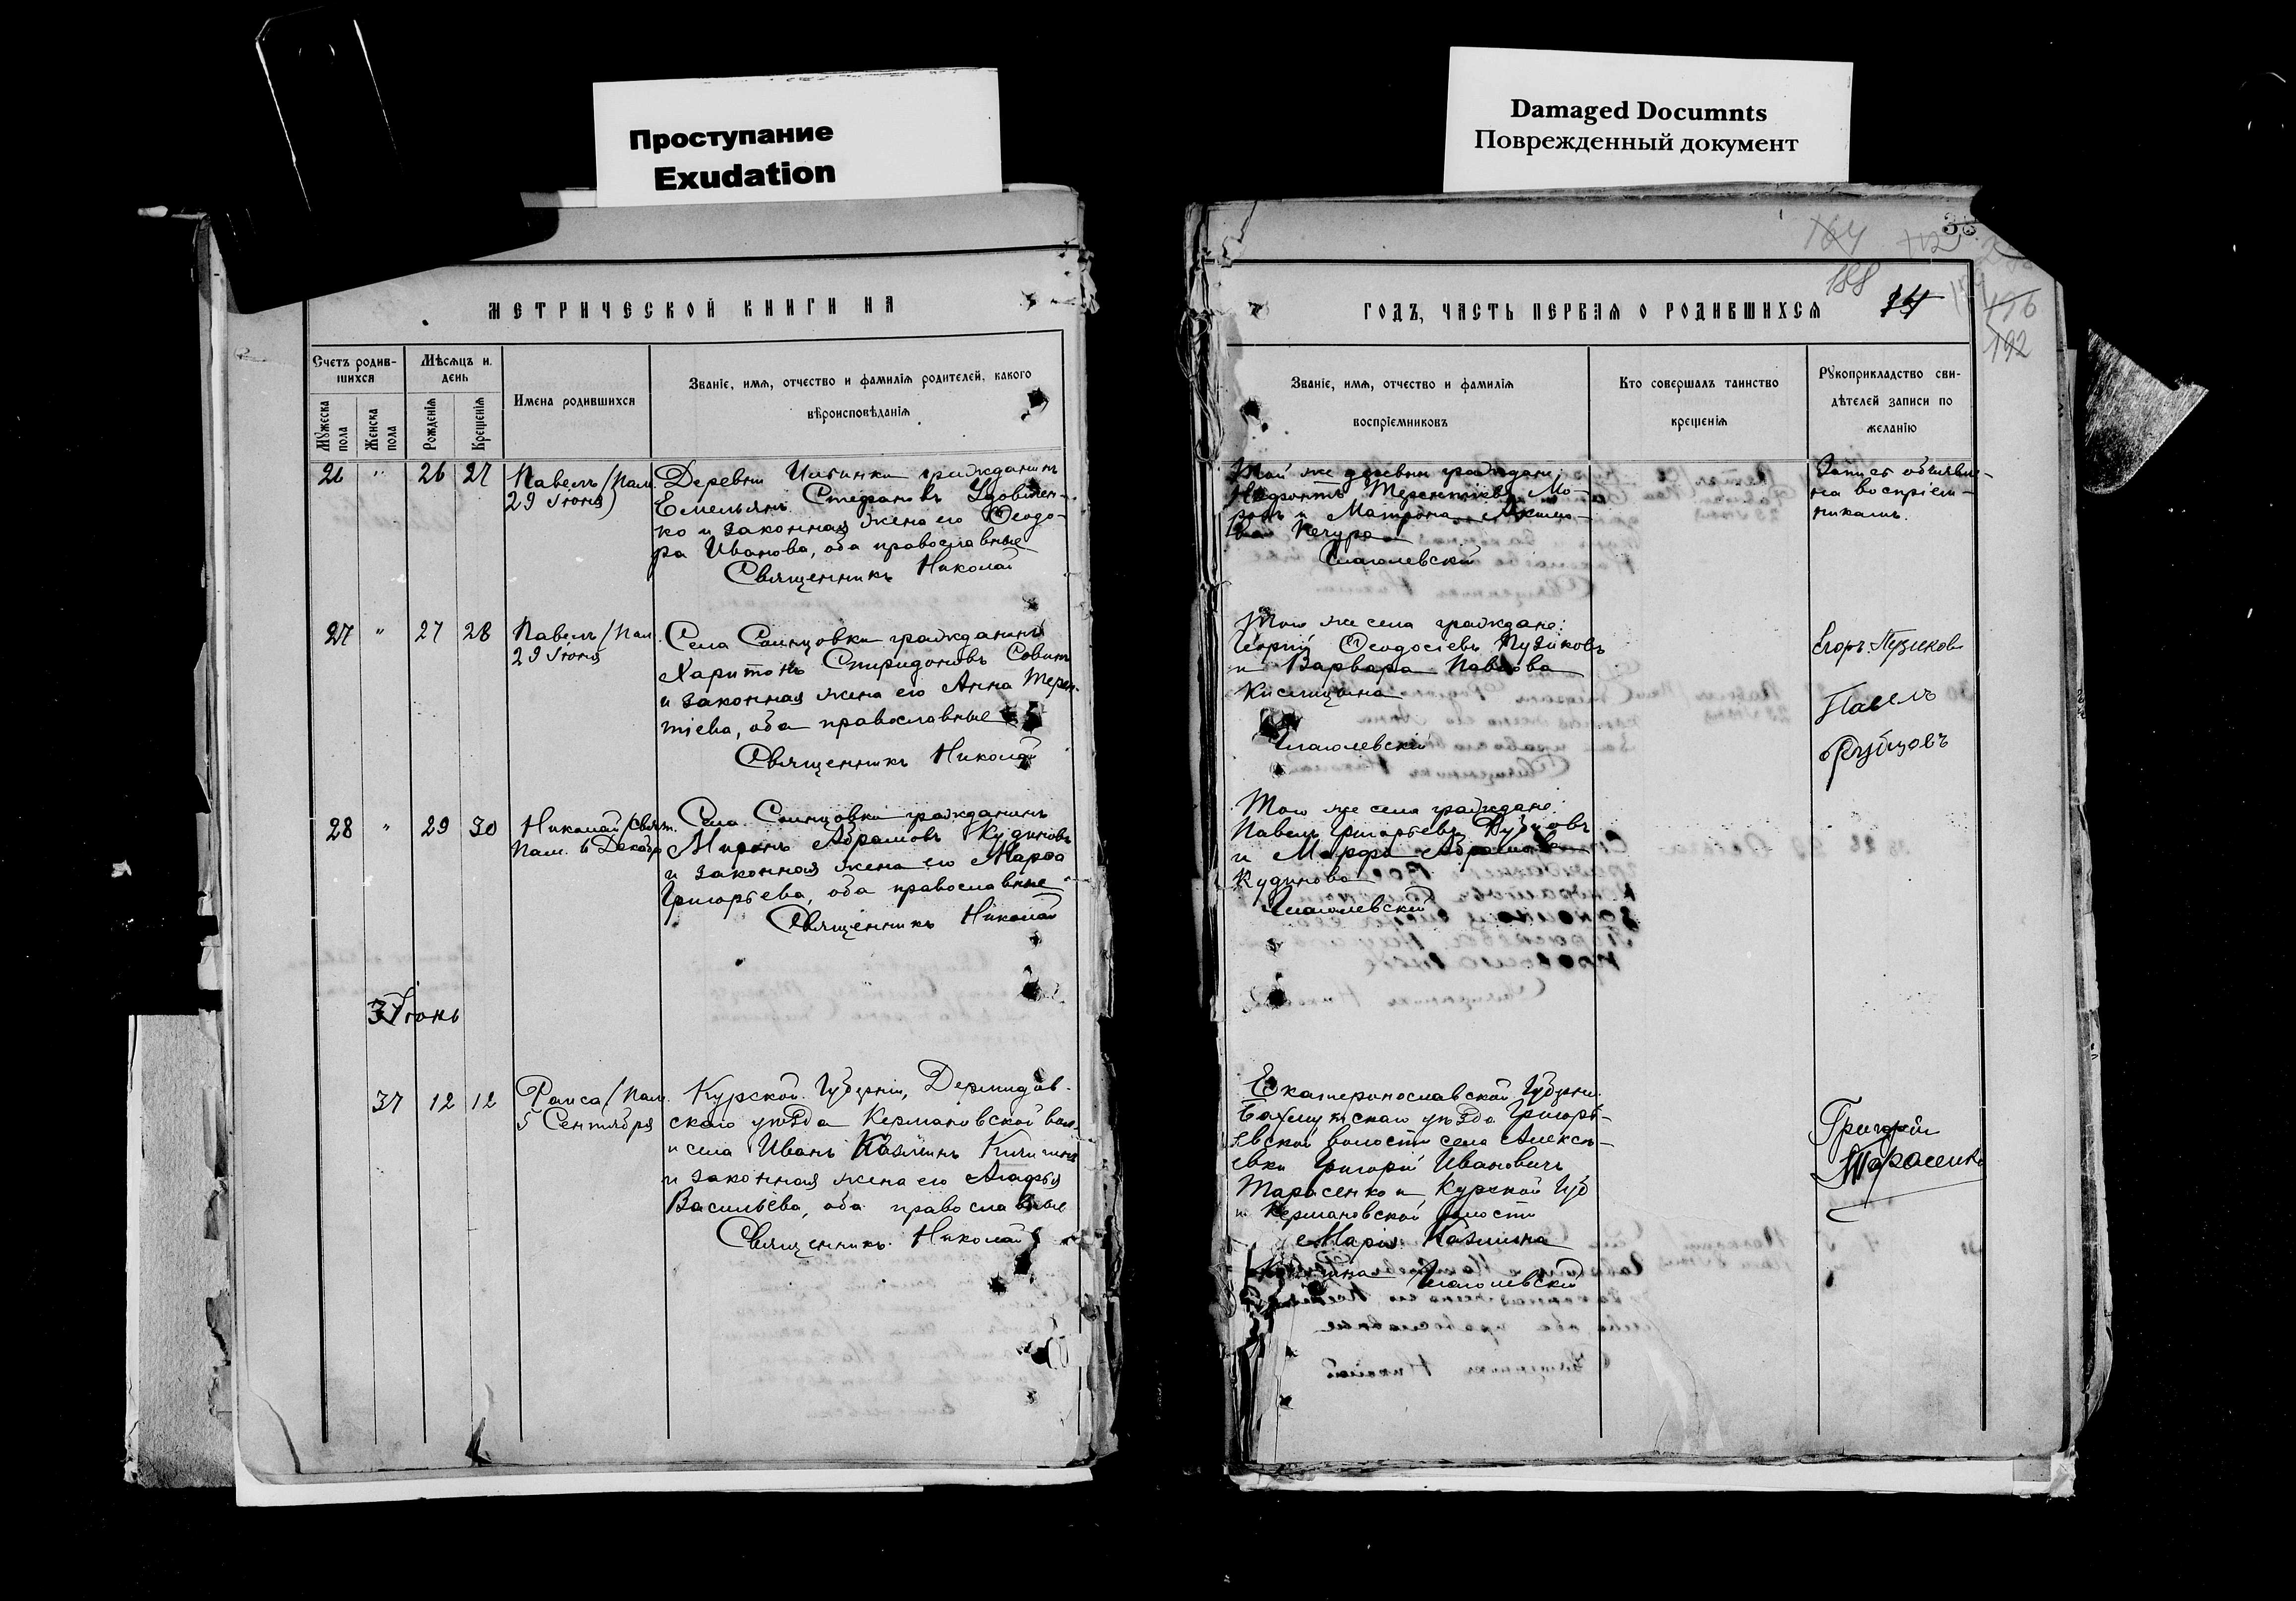 Проступание
Exudation
Damaged Documnts
Поврежденный документ
МЕТРИЧЕСКОЙ КНИГИ НА
Счетъ родив-
шихся
Мѣсяцъ и
день
Имена родившихся
Званіе, имя, отчество и фамилія родителей, какого
вѣроисповѣданія
Мужеска
пола
Женска
пола
Рожденія
Крещенія
26 " 26 27
Павелъ (Пам.
29 Іюня)
Деревни гражданинъ
Емельянъ Стефановъ Удовичен-
ко и законная жена его Ѳеодо-
ра Иванова, оба православные
Священникъ Николай
27 " 27 28
Павелъ (Пам.
29 Іюня
Села гражданинъ
Харитонъ Спиридоновъ
и законная жена его Анна Терен-
тіева, оба православные
Священникъ Николай
28 " 29 30
Николай (Свят.
Пам. 6 Декабр
Села гражданинъ
Миронъ Абрамовъ Кудиновъ
и законная жена его Марѳа
Григорьева, оба православные
Священникъ Николай
Іюнь
37 12 12
Раиса (Пам.
5 Сентября
Курской Губерніи,
скаго уѣзда Кермановской вол.
и села Иванъ
и законная жена его Агафья
Васильева, оба православные
Священникъ Николай
164 112
188
196
192
ГОДЪ, ЧАСТЬ ПЕРВАЯ О РОДИВШИХСЯ
Званіе, имя, отчество и фамилія
воспріемниковъ
Кто совершалъ таинство
крещенія
Рукоприкладство сви-
дѣтелей записи по
желанію
Той же деревни граждане:
Терентіевъ Мо-
розъ и Матрона
Кечура
Глаголевскій
Запись объявле-
на воспріем-
никамъ.
Того же села граждане:
Георгій Ѳеодосіевъ Пузиковъ
и Варвара Павлова
Кислицына
Глаголевскій
Егоръ Пузиковъ
Павелъ
Рубцовъ
Того же села граждане:
Павелъ Григорьевъ Рубцовъ
и Марфа Абрамова
Кудинова
Глаголевскій
Екатеринославской Губерніи
Бахмутскаго уѣзда Григорь-
евской волости села Алексѣ-
евки Григорій Ивановичъ
Тарасенко и Курской Губ
и Кермановской волости
Марія
Глаголевскій
Григорій
Тарасенко